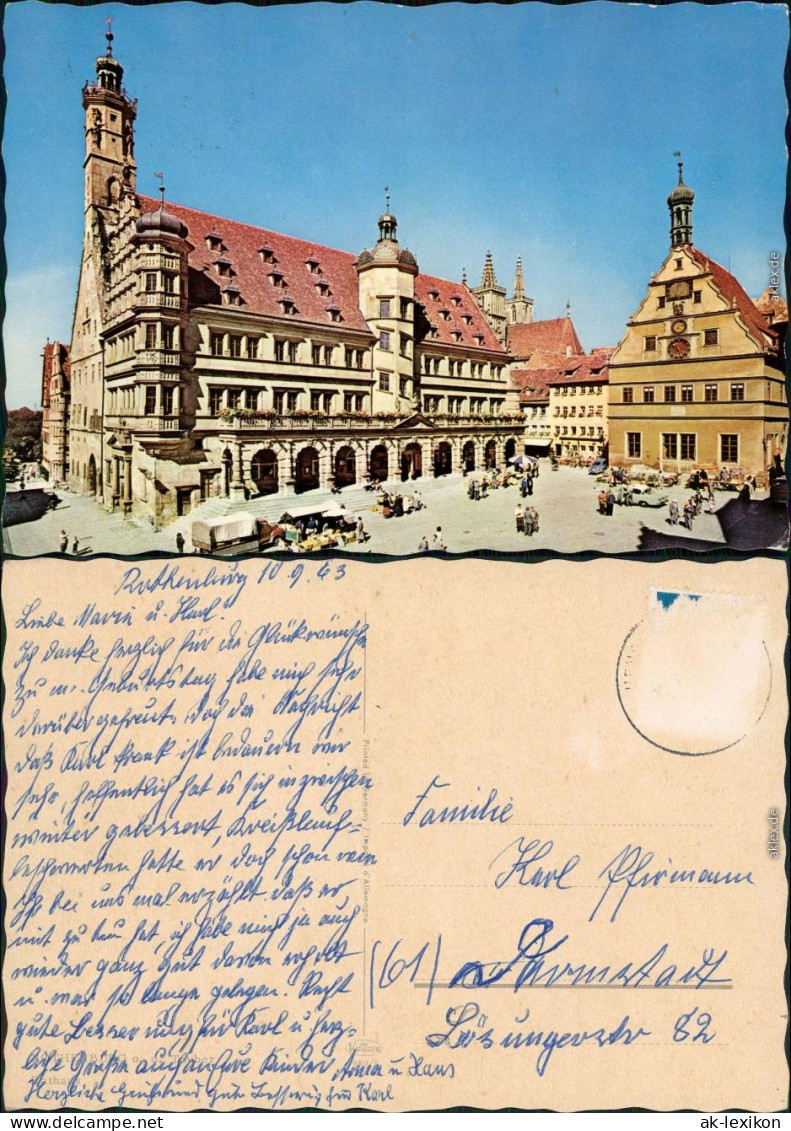 Rothenburg 10.9.63
Liebe Maria u. Karl!
Ich danke herzlich für die Glückwünsche
zu m. Geburtstag habe mich sehr
darüber gefreut. Doch die Nachricht
daß Karl krank ist bedauern wir
sehr, hoffentlich hat es sich inzwischen
wieder gebessert, Kreislauf-
beschwerden hatte er doch schon wie
Ihr bei uns mal erzählt daß er
mit zu tun hat, ich habe mich ja auch
wieder ganz gut davon erholt
u. war so lange gelegen. Recht
gute Besserung für Karl u. herz-
liche Grüße auch an Eure Kinder Anna u Hans
Herzliche Grüße und gute Besserung für Karl
ROTHENBURG o. d. Tauber
Rathaus
Printed in Germany / Imprimé d'Allemagne
Familie
Karl Pfirmann
(61) Darmstadt
Lösungerstr 82
aklex.de
aklex.de
ak-lexikon